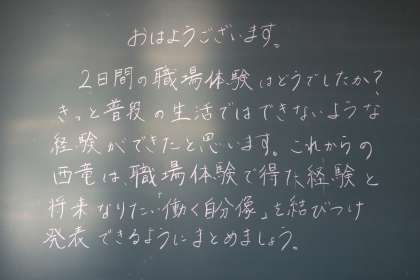 おはようございます。
2日間の職場体験はどうでしたか?
きっと普段の生活ではできないような
経験ができたと思います。これからの
西竜は、職場体験で得た経験と
将来なりたい「働く自分像」を結びつけ
発表できるようにまとめましょう。